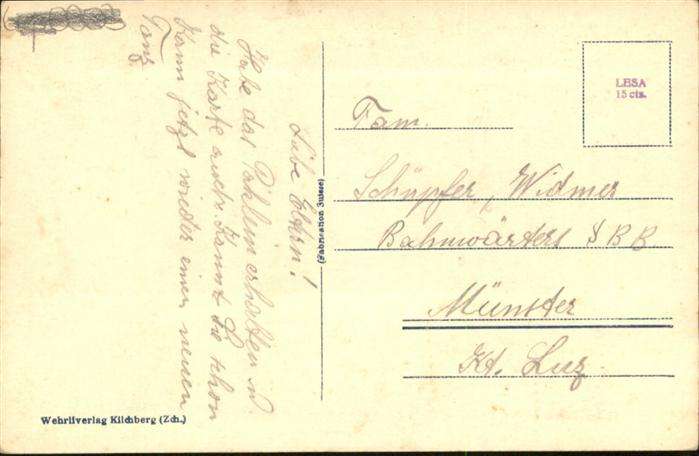 Liebe Eltern!
Habe das Päklein erhalten u.
die Karte auch. Kannt Sie schon
Kann jetzt wieder einen neuen
Tanz.
(Fabrication Suisse)
LESA
15 cts.
Fam.
Schüpfer, Widmer
Bahnwärters SBB
Münster
Kt. Luz.
Wehrliverlag Kilchberg (Zch.)